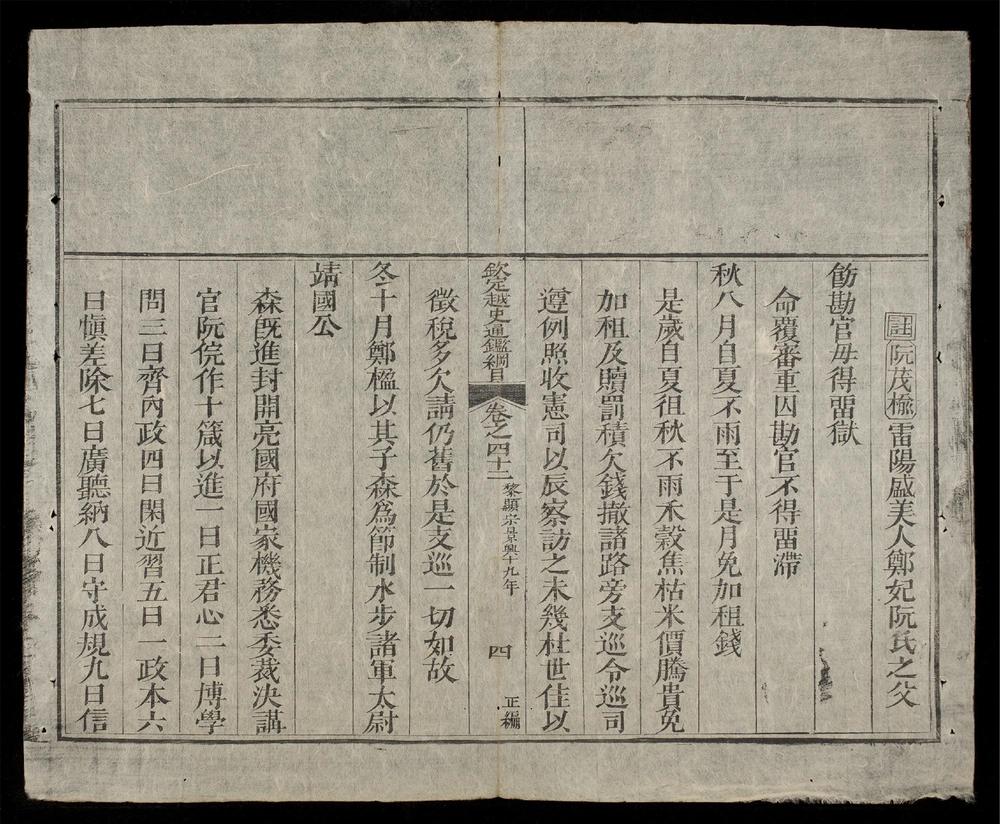 註阮茂𣖕雷陽盛美人鄭妃阮氏之父
飭勘官毋得畱獄
命覆審重囚勘官不得畱滯
秋八月自夏不雨至于是月免加租錢
是歲自夏徂秋不雨禾穀焦枯米價騰貴免
加租及贖罰積欠錢撤諸路旁支巡令巡司
遵例照收憲司以辰察訪之未幾杜世佳以
欽定越史通鑑綱目 卷之四十二 黎顯宗景興十九年 四 正編
徵稅多欠請仍舊於是支巡一切如故
冬十月鄭楹以其子森爲節制水步諸軍太尉
靖國公
森旣進封開亮國府國家機務悉委裁決講
官阮俒作十箴以進一曰正君心二曰博學
問三曰齊內政四曰閑近習五曰一政本六
曰愼差除七曰廣聽納八曰守成規九曰信